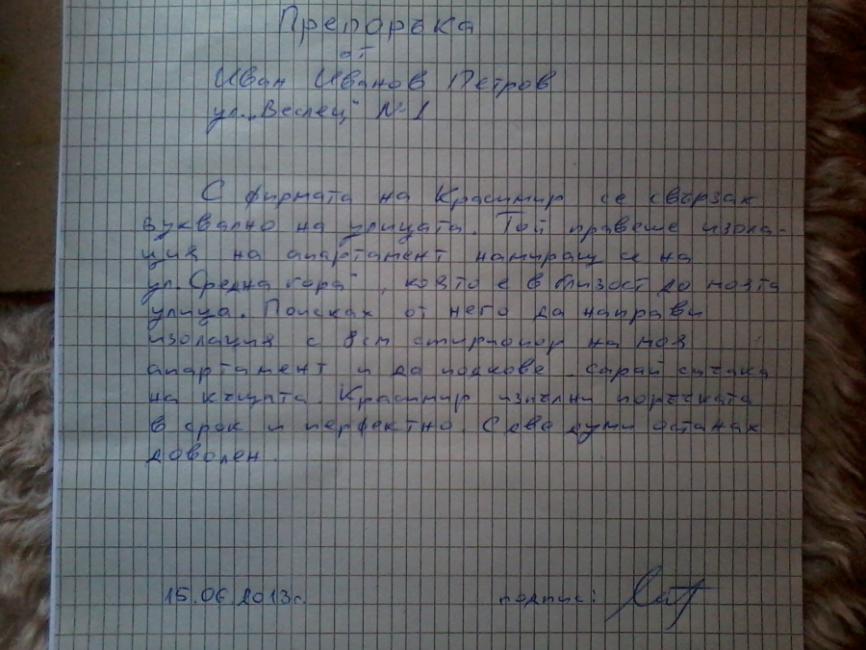 Препоръка
от
Иван Иванов Петров
ул. „Веслец“ №1
С фирмата на Красимир се свързах
буквално на улицата. Той правеше изола-
ция на апартамент намиращ се на
ул. „Средна гора“, която е в близост до моята
улица. Поисках от него да направи
изолация с 8см стиропор на моя
апартамент и да подкове
на къщата. Красимир изпълни поръчката
в срок и перфектно. С две думи останах
доволен.
15.06.2013г.
подпис: